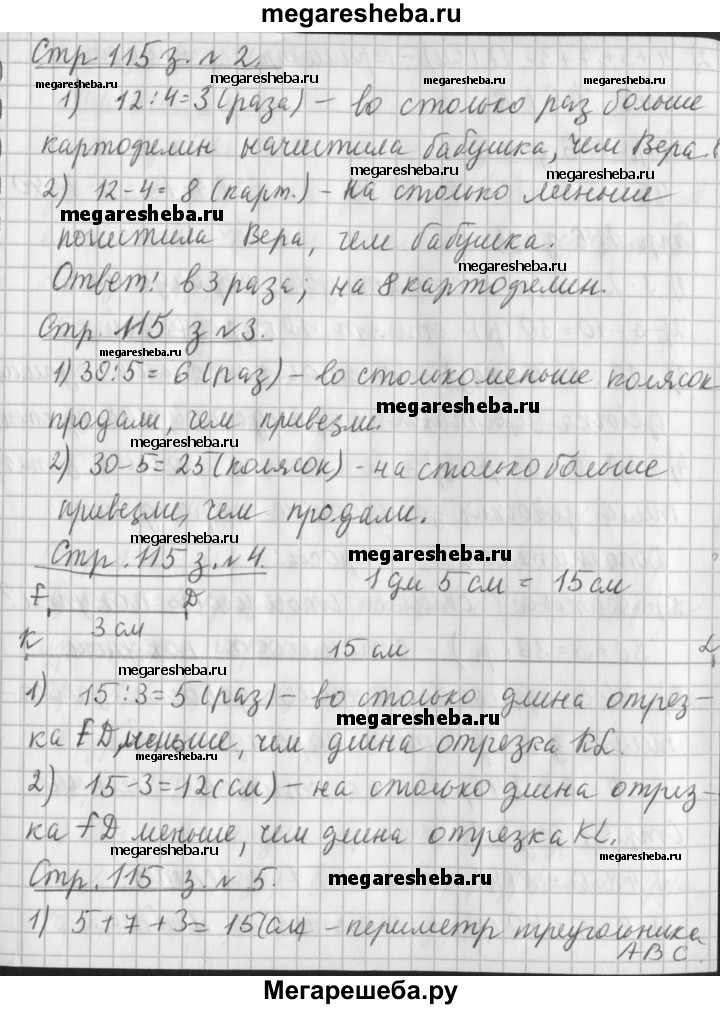 megaresheba.ru
Стр 115 з. № 2.
megaresheba.ru
megaresheba.ru
1) 12:4=3 (раза) – во столько раз больше
картофелин начистила бабушка, чем Вера.
megaresheba.ru
megaresheba.ru
2) 12-4=8 (карт.) – на столько меньше
megaresheba.ru
megaresheba.ru
почистила Вера, чем бабушка.
megaresheba.ru
Ответ: в 3 раза; на 8 картофелин.
Стр. 115 з № 3.
megaresheba.ru
megaresheba.ru
1) 30:5=6 (раз) – во столько меньше колясок
megaresheba.ru
продали, чем привезли.
megaresheba.ru
megaresheba.ru
2) 30-5=25 (колясок) – на столько больше
привезли, чем продали.
megaresheba.ru
Стр. 115 з. № 4.
megaresheba.ru
1 дм 5 см = 15 см
F D
3 см
K 15 см L
megaresheba.ru
megaresheba.ru
1) 15:3=5 (раз) – во столько длина отрез-
megaresheba.ru
ка FD меньше, чем длина отрезка KL.
megaresheba.ru
2) 15-3=12 (см) – на столько длина отрез-
ка FD меньше, чем длина отрезка KL.
megaresheba.ru
megaresheba.ru
Стр. 115 з. № 5.
megaresheba.ru
1) 5+7+3=15 (см) – периметр треугольника
ABC.
Мегарешеба.ру